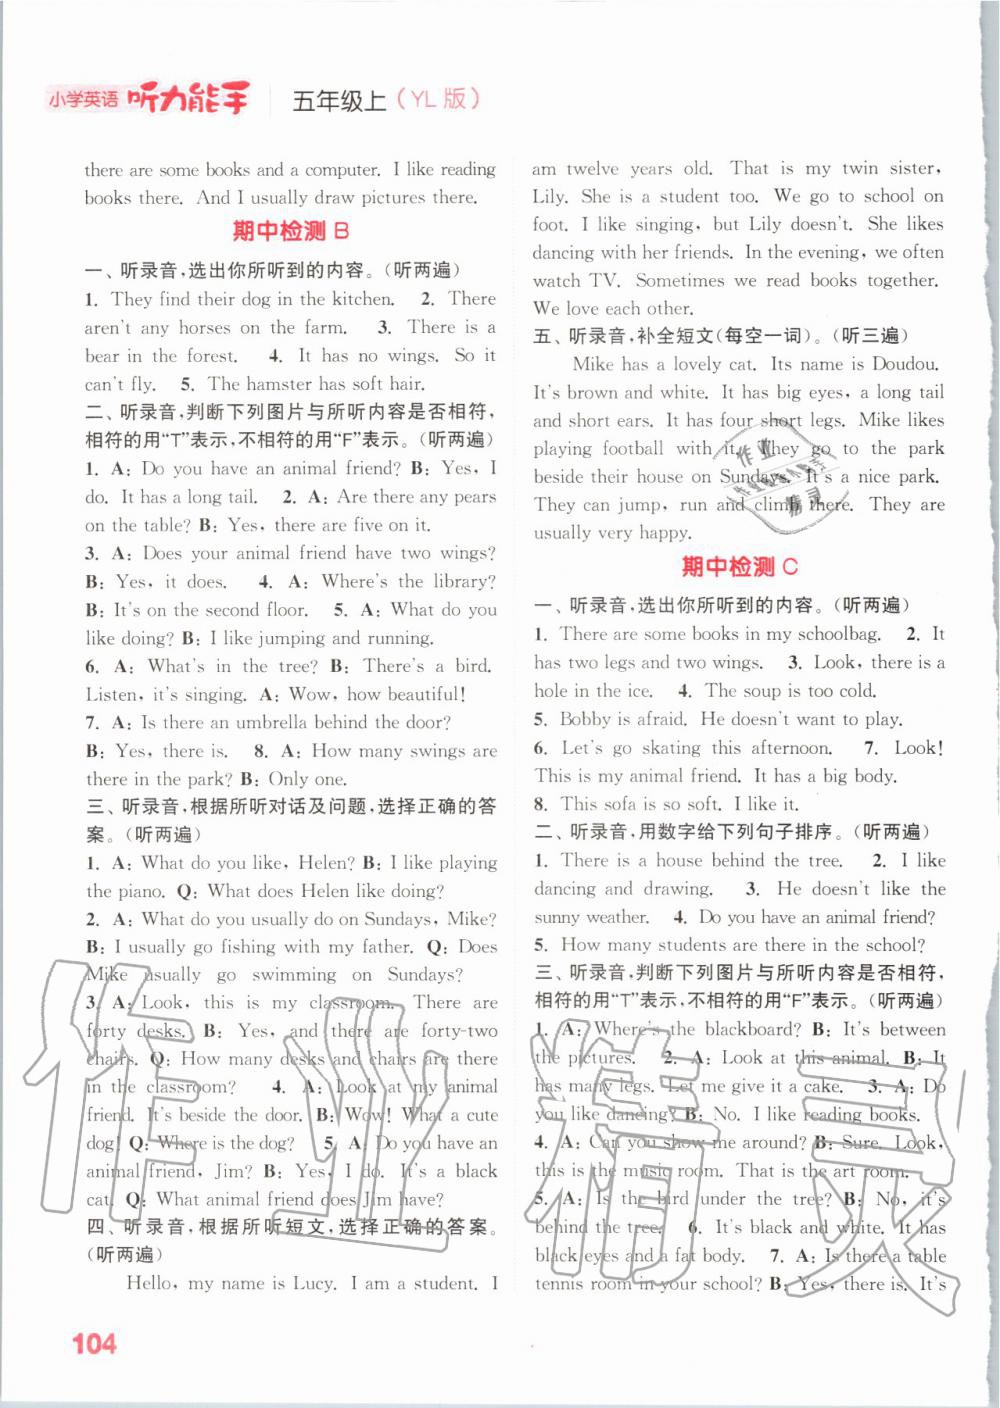 小学英语 听力能手 五年级上（YL 版）
there are some books and a computer. I like reading
books there. And I usually draw pictures there.
期中检测 B
一、听录音,选出你所听到的内容。(听两遍)
1. They find their dog in the kitchen. 2. There
aren't any horses on the farm. 3. There is a
bear in the forest. 4. It has no wings. So it
can't fly. 5. The hamster has soft hair.
二、听录音,判断下列图片与所听内容是否相符,
相符的用“T”表示,不相符的用“F”表示。(听两遍)
1. A: Do you have an animal friend? B: Yes, I
do. It has a long tail. 2. A: Are there any pears
on the table? B: Yes, there are five on it.
3. A: Does your animal friend have two wings?
B: Yes, it does. 4. A: Where's the library?
B: It's on the second floor. 5. A: What do you
like doing? B: I like jumping and running.
6. A: What's in the tree? B: There's a bird.
Listen, it's singing. A: Wow, how beautiful!
7. A: Is there an umbrella behind the door?
B: Yes, there is. 8. A: How many swings are
there in the park? B: Only one.
三、听录音,根据所听对话及问题,选择正确的答
案。(听两遍)
1. A: What do you like, Helen? B: I like playing
the piano. Q: What does Helen like doing?
2. A: What do you usually do on Sundays, Mike?
B: I usually go fishing with my father. Q: Does
Mike usually go swimming on Sundays?
3. A: Look, this is my classroom. There are
forty desks. B: Yes, and there are forty-two
chairs. Q: How many desks and chairs are there
in the classroom? 4. A: Look at my animal
friend. It's beside the door. B: Wow! What a cute
dog! Q: Where is the dog? 5. A: Do you have an
animal friend, Jim? B: Yes, I do. It's a black
cat. Q: What animal friend does Jim have?
四、听录音,根据所听短文,选择正确的答案。
(听两遍)
Hello, my name is Lucy. I am a student. I
am twelve years old. That is my twin sister,
Lily. She is a student too. We go to school on
foot. I like singing, but Lily doesn't. She likes
dancing with her friends. In the evening, we often
watch TV. Sometimes we read books together.
We love each other.
五、听录音,补全短文(每空一词)。(听三遍)
Mike has a lovely cat. Its name is Doudou.
It's brown and white. It has big eyes, a long tail
and short ears. It has four short legs. Mike likes
playing football with it. They go to the park
beside their house on Sundays. It's a nice park.
They can jump, run and climb there. They are
usually very happy.
期中检测 C
一、听录音,选出你所听到的内容。(听两遍)
1. There are some books in my schoolbag. 2. It
has two legs and two wings. 3. Look, there is a
hole in the ice. 4. The soup is too cold.
5. Bobby is afraid. He doesn't want to play.
6. Let's go skating this afternoon. 7. Look!
This is my animal friend. It has a big body.
8. This sofa is so soft. I like it.
二、听录音,用数字给下列句子排序。(听两遍)
1. There is a house behind the tree. 2. I like
dancing and drawing. 3. He doesn't like the
sunny weather. 4. Do you have an animal friend?
5. How many students are there in the school?
三、听录音,判断下列图片与所听内容是否相符,
相符的用“T”表示,不相符的用“F”表示。(听两遍)
1. A: Where's the blackboard? B: It's between
the pictures. 2. A: Look at this animal. B: It
has many legs. Let me give it a cake. 3. A: Do
you like dancing? B: No. I like reading books.
4. A: Can you show me around? B: Sure. Look,
this is the music room. That is the art room.
5. A: Is the bird under the tree? B: No, it's
behind the tree. 6. It's black and white. It has
black eyes and a fat body. 7. A: Is there a table
tennis room in your school? B: Yes, there is. It's
104
作业精灵